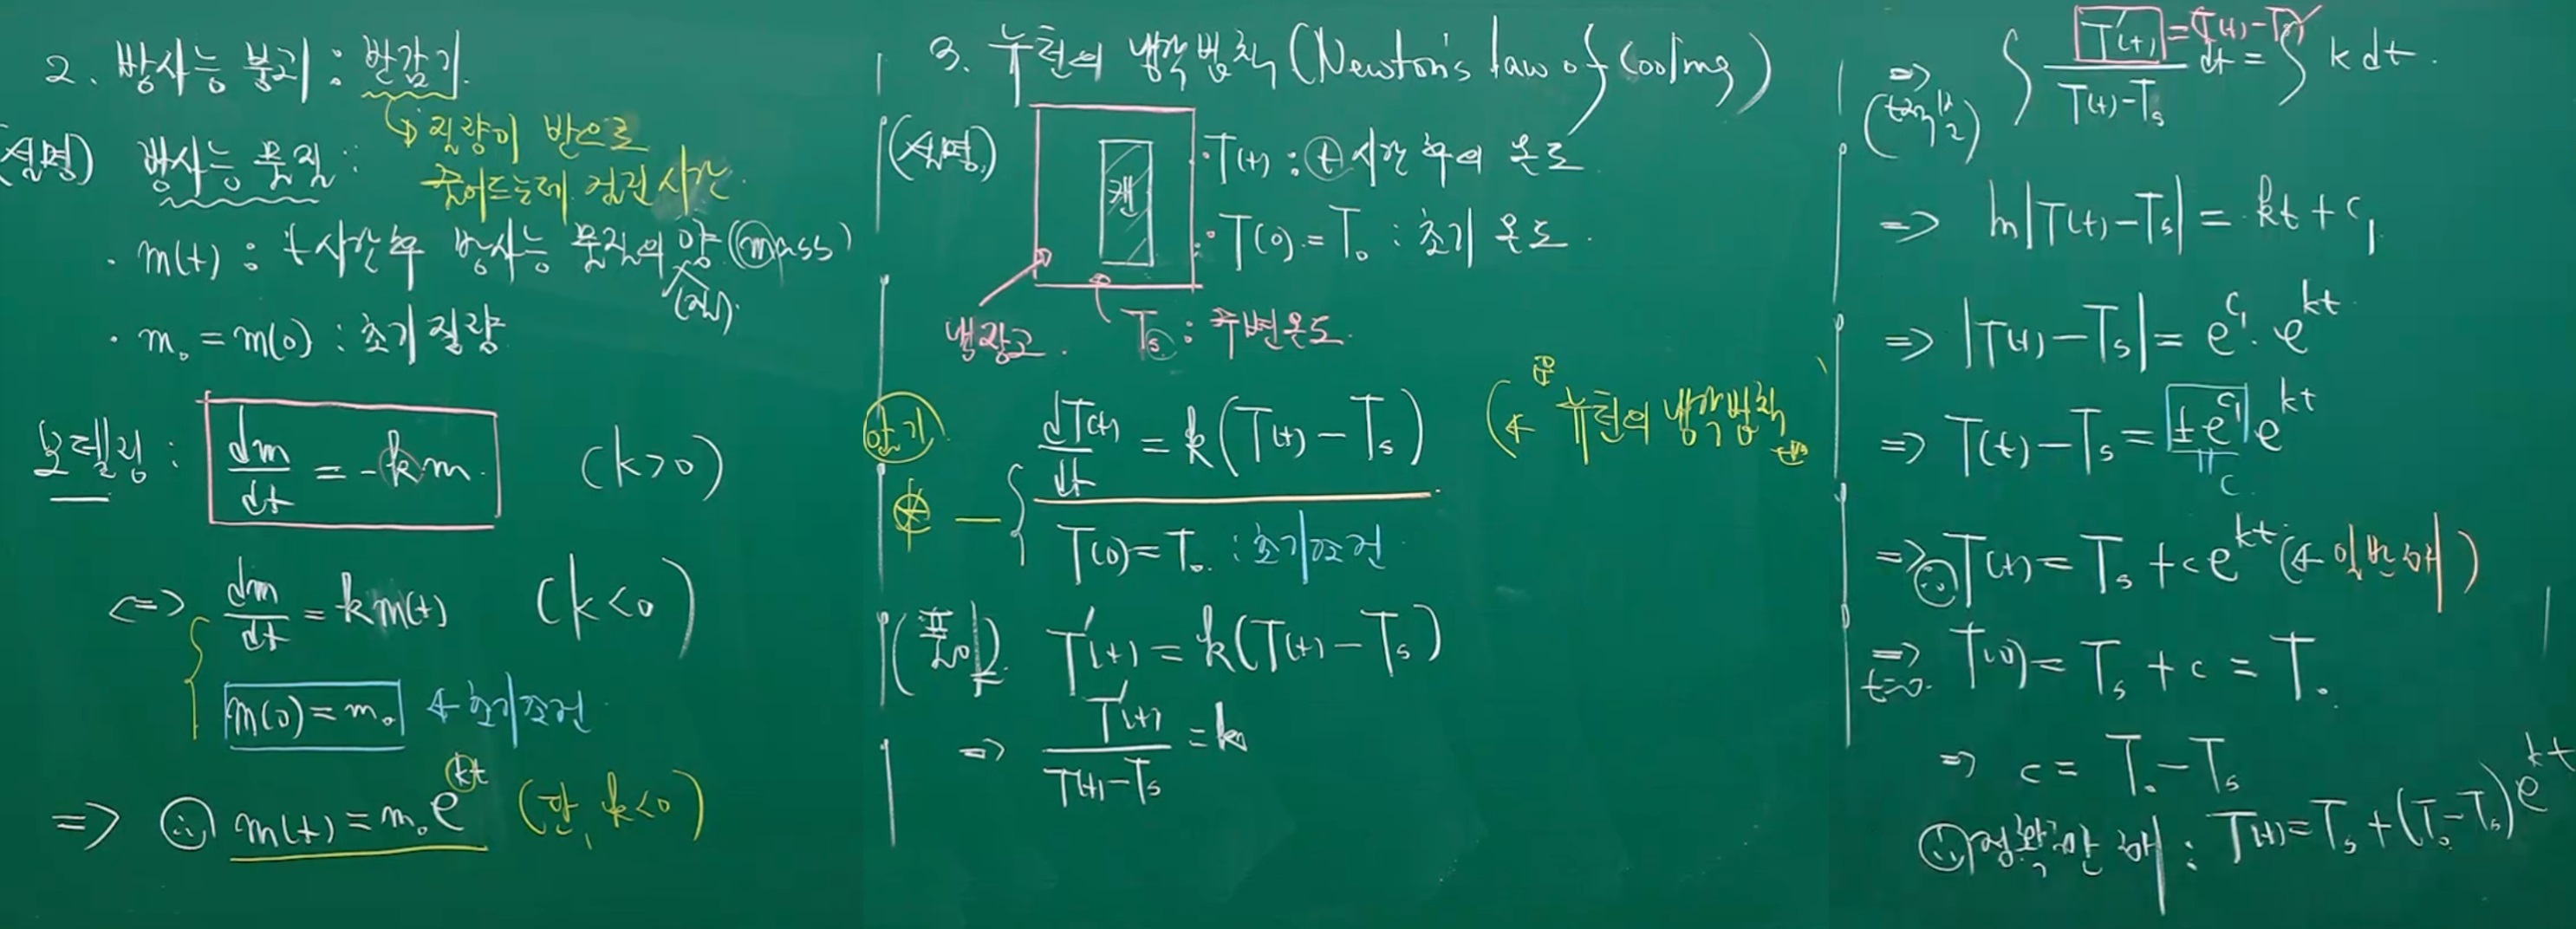 2. 방사능 붕괴 : 반감기.
↳ 질량이 반으로
줄어드는데 걸린 시간.
(설명) 방사능 물질 :
· m(t) : t시간 후 방사능 물질의 양 (mass)
(질).
· m₀ = m(0) : 초기 질량
모델링 : dm/dt = -km. (k>0)
<=> dm/dt = km(t) (k<0)
m(0) = m₀ ← 초기조건
=> ∴ m(t) = m₀e^{kt} (단, k<0)
3. 뉴턴의 냉각법칙 (Newton's law of Cooling)
(설명)
캔
· T(t) : t 시간 후의 온도.
· T(0) = T₀ : 초기 온도.
냉장고.
Ts : 주변온도.
암기
dT(t)/dt = k(T(t) - Ts)
(← 뉴턴의 냉각법칙
T(0) = T₀ : 초기조건
(풀이) T'(t) = k(T(t) - Ts)
=> T'(t)/(T(t)-Ts) = k
=> ∫ T'(t)/(T(t)-Ts) dt = ∫ k dt.
= (T(t)-Ts)'
=> ln|T(t) - Ts| = kt + c₁
=> |T(t) - Ts| = e^{c₁} · e^{kt}
=> T(t) - Ts = ±e^{c₁} e^{kt}
= c
=> ∴ T(t) = Ts + ce^{kt} (← 일반해)
=> t=0. T(0) = Ts + c = T₀
=> c = T₀ - Ts
∴ 정확한 해 : T(t) = Ts + (T₀ - Ts)e^{kt}